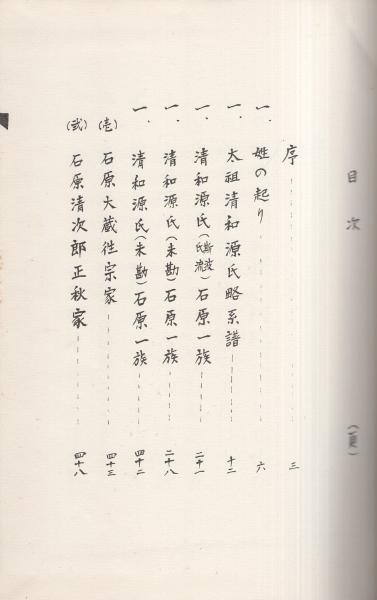 目次 (頁)
序 三
一、姓の起り 六
一、太祖清和源氏略系譜 十二
一、清和源氏(斯波氏流)石原一族 二十一
一、清和源氏(未勘)石原一族 二十八
一、清和源氏(未勘)石原一族 四十二
(壱)石原大蔵往宗家 四十三
(弐)石原清次郎正秋家 四十八